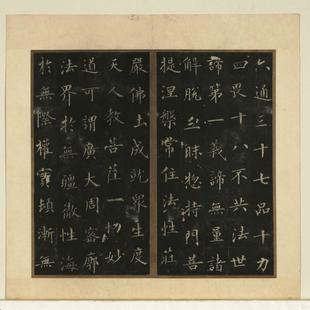 六通三十七品十力
四畏十八不共法世
諦第一義諦無量諸
解脫三昧惣持門菩
提涅槃常住法性莊
嚴佛土成就眾生度
天人教菩薩一切妙
道可謂廣大周密廓
法界於無疆徹性海
於無際權實頓漸無